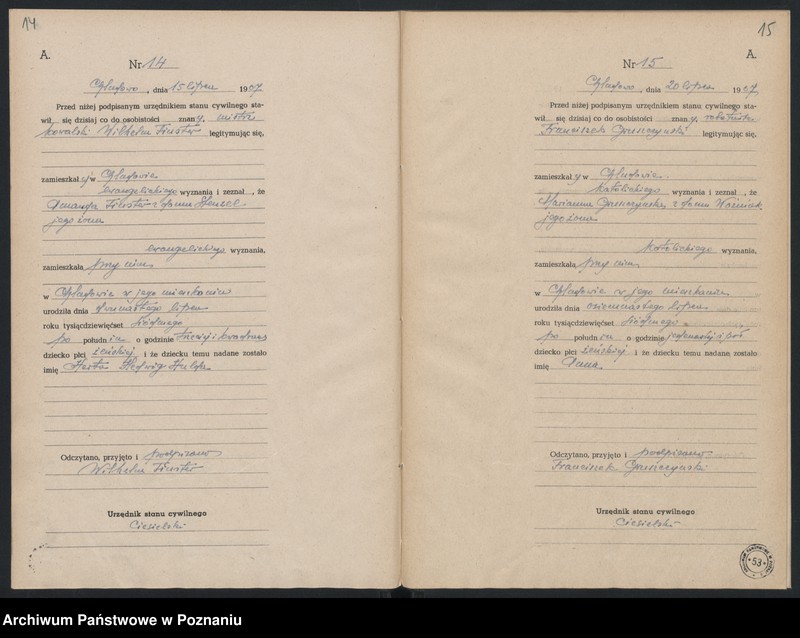 14
A.
Nr 14
, dnia 15 lipca 1907
Przed niżej podpisanym urzędnikiem stanu cywilnego sta-
wił się dzisiaj co do osobistości znany, mistrz
kowalski Wilhelm Finster legitymując się,
zamieszkały w
ewangelickiego wyznania i zeznał, że
Amanda Finster z domu
jego żona
ewangelickiego wyznania,
zamieszkała przy nim
w w jego mieszkaniu
urodziła dnia dwunastego lipca
roku tysiącdziewięćset siódmego
po południu o godzinie trzeciej i kwadrans
dziecko płci żeńskiej i że dziecku temu nadane zostało
imię Herta Hedwig Hulda
Odczytano, przyjęto i podpisano
Wilhelm Finster
Urzędnik stanu cywilnego
Ciesielski
15
A.
Nr 15
, dnia 20 lipca 1907
Przed niżej podpisanym urzędnikiem stanu cywilnego sta-
wił się dzisiaj co do osobistości znany, robotnik
Franciszek legitymując się,
zamieszkały w
katolickiego wyznania i zeznał, że
Marianna z domu Woźniak
jego żona
katolickiego wyznania,
zamieszkała przy nim
w w jego mieszkaniu
urodziła dnia osiemnastego lipca
roku tysiącdziewięćset siódmego
po południu o godzinie jedenastej i pół
dziecko płci żeńskiej i że dziecku temu nadane zostało
imię Anna
Odczytano, przyjęto i podpisano
Franciszek
Urzędnik stanu cywilnego
Ciesielski
53
Archiwum Państwowe w Poznaniu